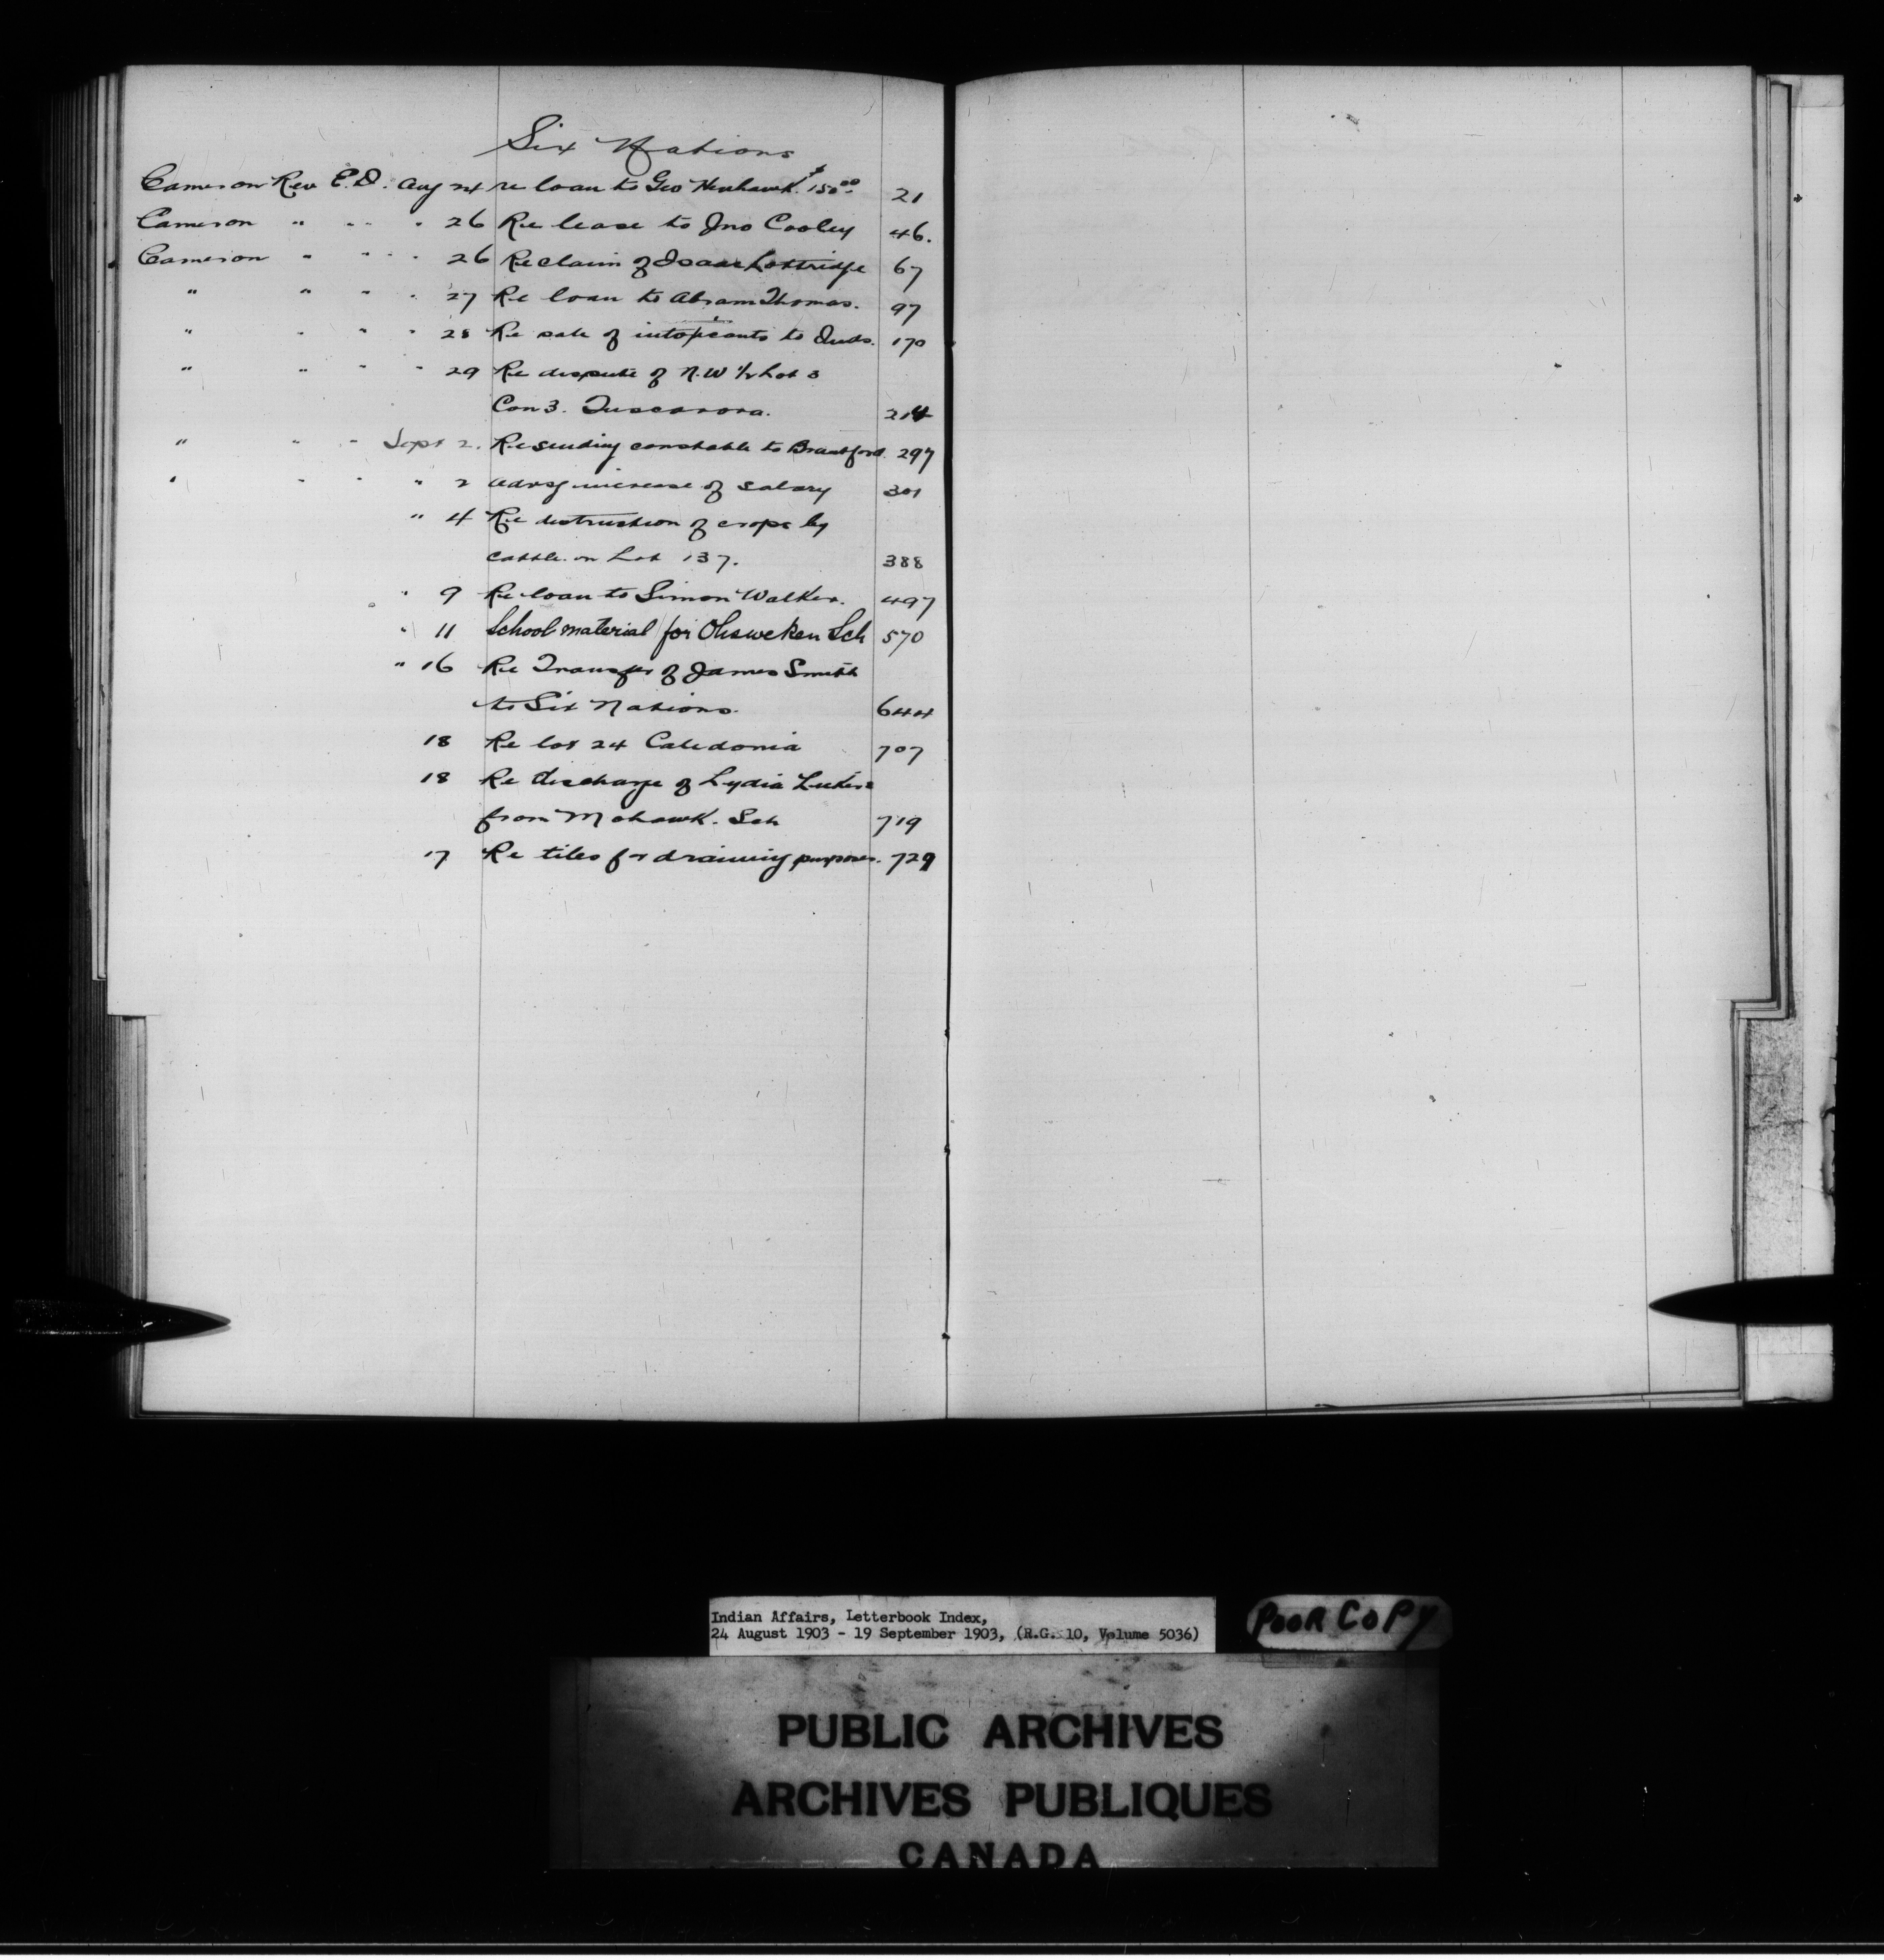 Six Nations
Cameron Rev E.D. Aug 24 re loan to Geo Newhawk $150.00 21
Cameron " " " " 26 Re lease to Jno Cooley 46.
Cameron " " " " 26 Re claim of Isaac Lottridge 67
" " " " 27 Re loan to Abram Thomas. 97
" " " " 28 Re sale of intoxicants to Inds. 170
" " " " 29 Re dispute of N.W ½ Lot 3
Con 3. Tuscarora. 214
" " " Sept 2. Re sending constable to Brantford. 297
" " " " 2 advsg increase of salary 301
" 4 Re destruction of crops by
cattle on Lot 137. 388
" 9 Re loan to Simon Walker. 497
" 11 School material for Ohsweken Sch 570
" 16 Re Transfer of James Smith
to Six Nations. 644
18 Re lot 24 Caledonia 707
18 Re discharge of Lydia
from Mohawk. Sch 719
17 Re tiles for draining purposes. 729
Indian Affairs, Letterbook Index,
24 August 1903 - 19 September 1903, (R.G. 10, Volume 5036)
POOR COPY
PUBLIC ARCHIVES
ARCHIVES PUBLIQUES
CANADA